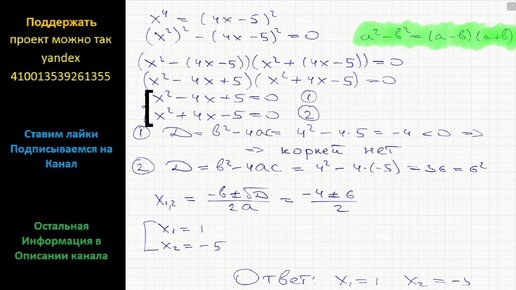 Поддержать
проект можно так
yandex
410013539261355
Ставим лайки
Подписываемся на
Канал
Остальная
Информация в
Описании канала
x⁴ = (4x-5)²
(x²)² - (4x-5)² = 0
a²-b² = (a-b)(a+b)
(x² - (4x-5))(x² + (4x-5)) = 0
(x² - 4x + 5)(x² + 4x - 5) = 0
[ x² - 4x + 5 = 0 ①
x² + 4x - 5 = 0 ②
① D = b² - 4ac = 4² - 4·5 = -4 < 0 ⇒
⇒ корней нет
② D = b² - 4ac = 4² - 4·(-5) = 36 = 6²
x₁,₂ = (-b ± √D)/2a = (-4 ± 6)/2
[ x₁ = 1
x₂ = -5
Ответ: x₁ = 1 x₂ = -5